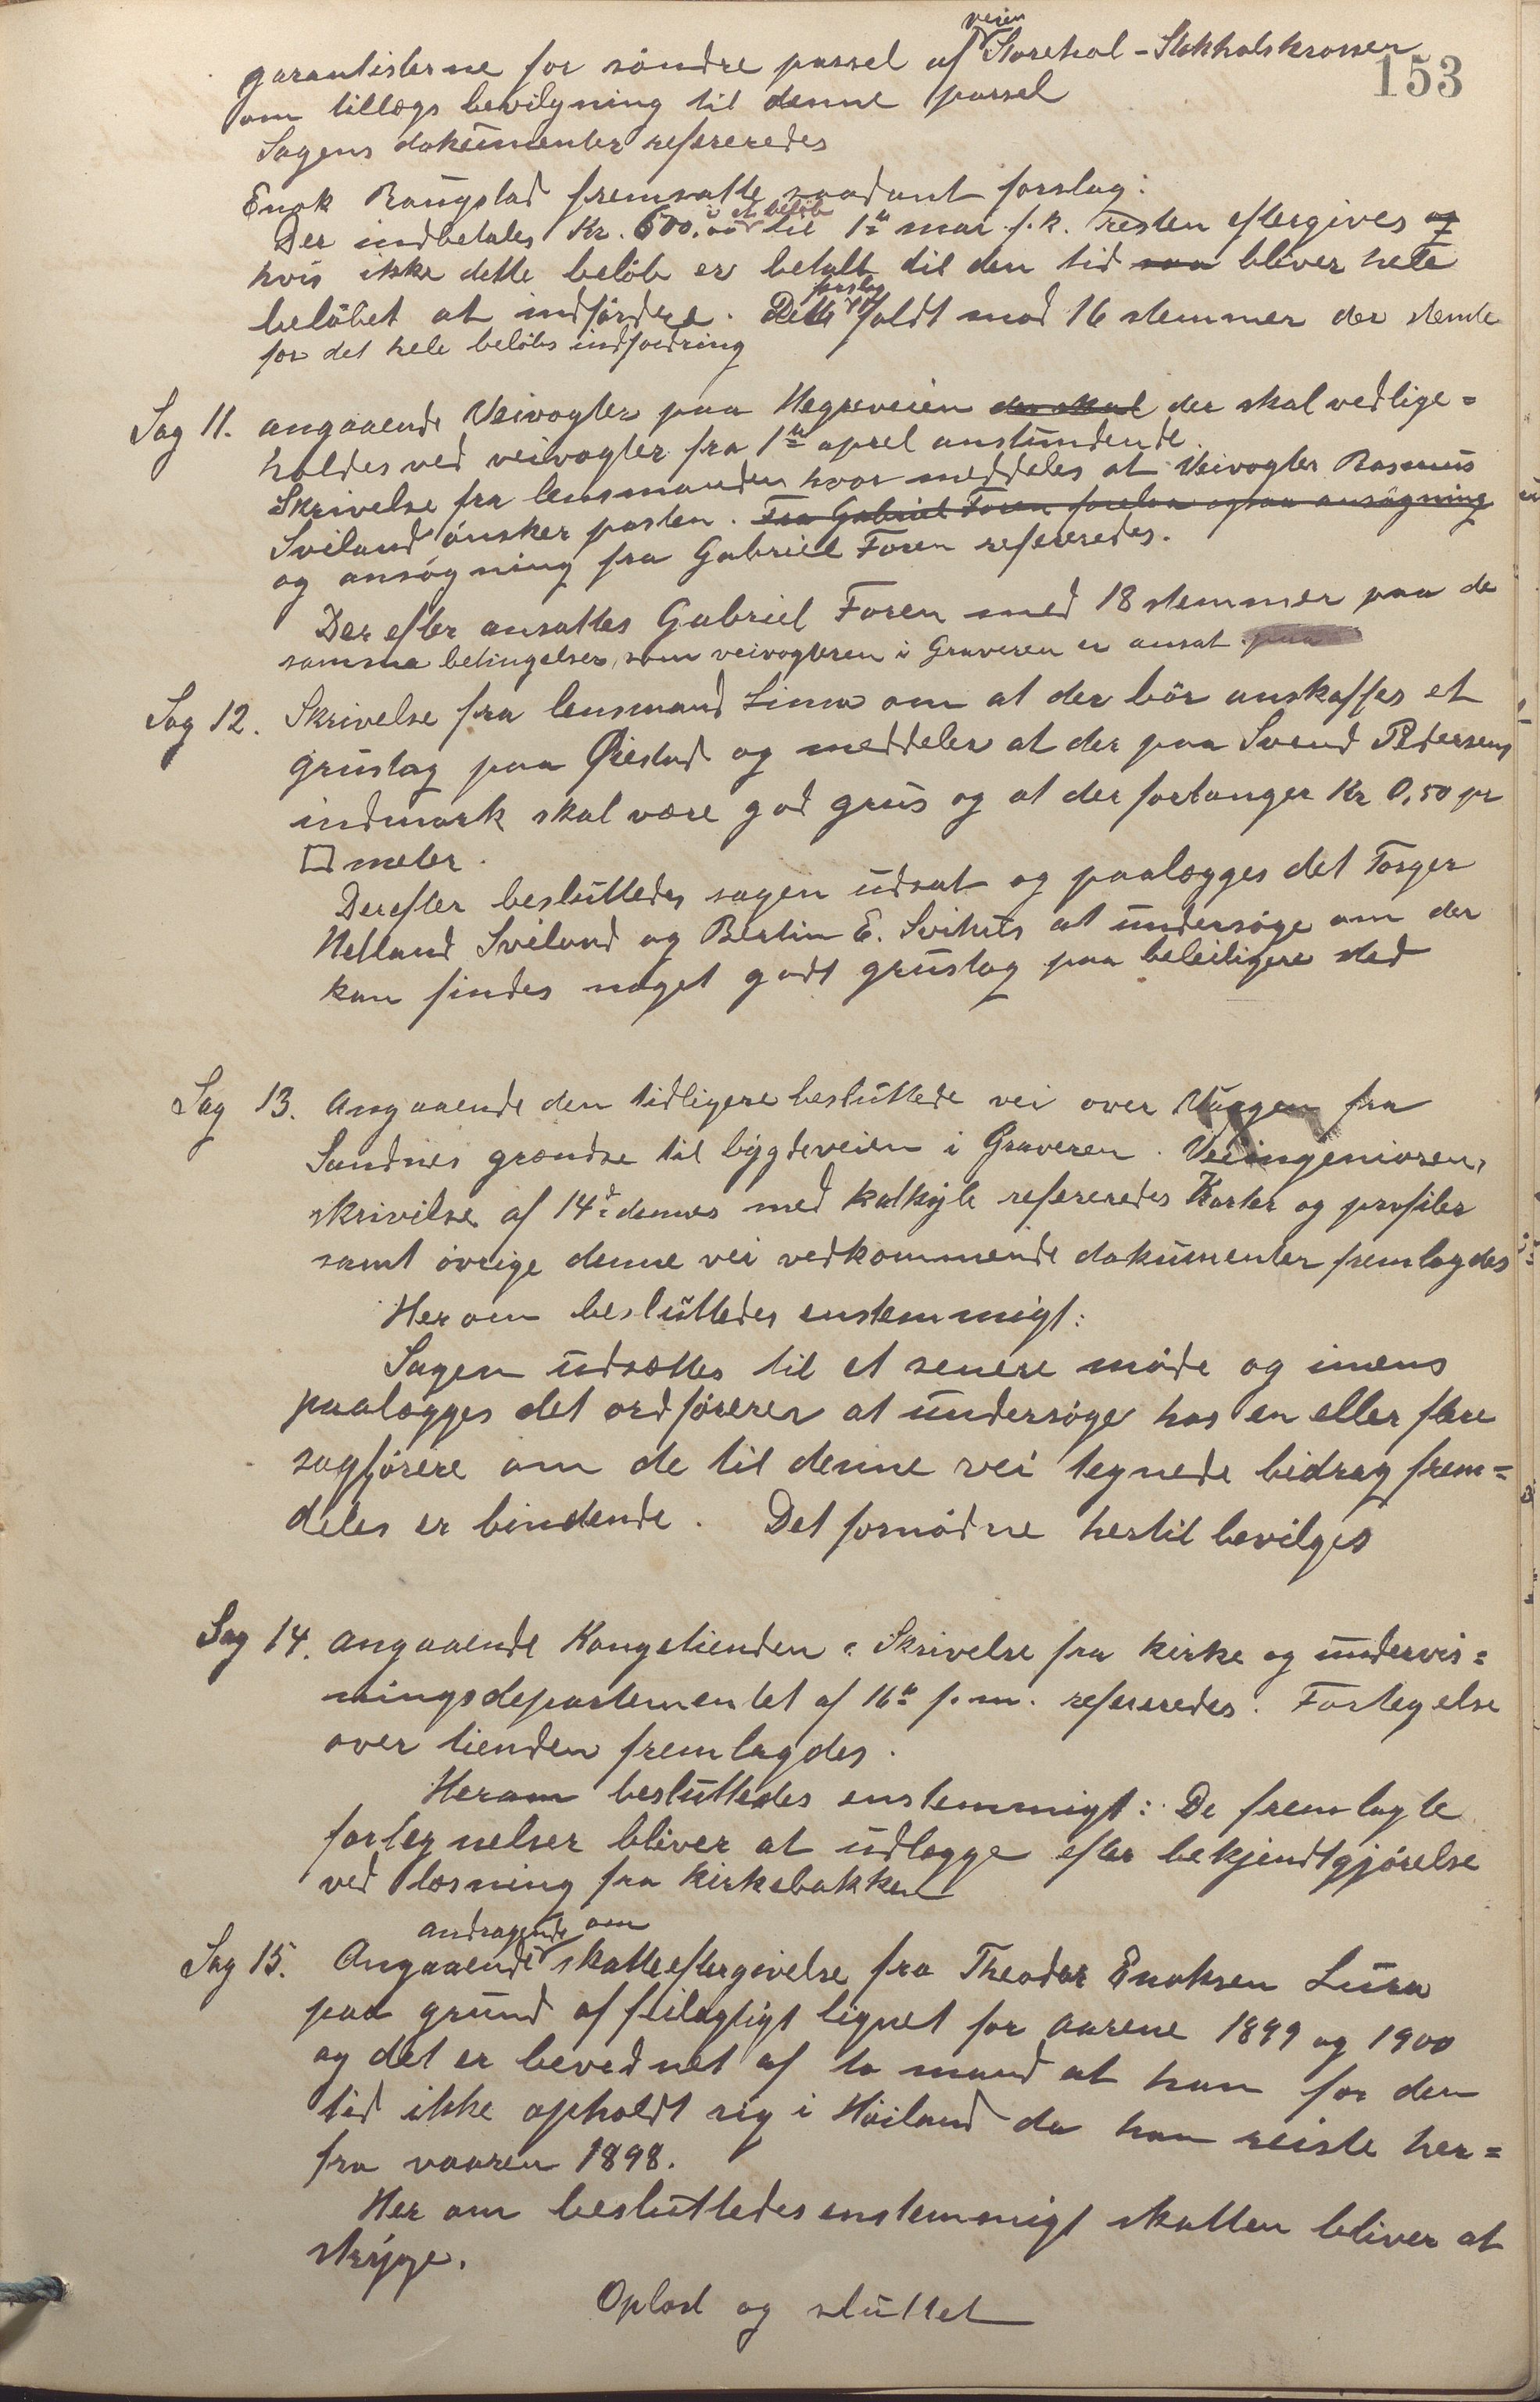 153
garantisterne for söndre parsel af veien Storehol - Stokholskrossen
om tillægs bevilgning til denne parsel
Sagens dokumenter refereredes
Enok Raugstad fremsatte saadant forslag:
Der indbetales Kr. 600.00 i et beløb til 1ste mar. f. k. resten eftergives og
hvis ikke dette beløb er betalt til den tid saa bliver hele
beløbet at indfordre. Dette forslag faldt mod 16 stemmer der stemte
for det hele beløbs indfordring
Sag 11. angaaende Veivogter paa Hegreveien der skal der skal vedlige=
holdes ved veivogter fra 1ste aprel anstundende.
Skrivelse fra lensmanden hvor meddeles at Veivogter Rasmus
Sviland ønsker posten. Fra Gabriel Foren forelaa ogsaa ansøgning
og ansøgning fra Gabriel Foren refereredes.
Derefter ansattes Gabriel Foren med 18 stemmer paa de
samme betingelser, som veivogteren i Graveren er ansat paa
Sag 12. Skrivelse fra lensmand Lima om at der bör anskaffes et
grustag paa Øiestad og meddeler at der paa Svend Pedersens
indmark skal være god grus og at der forlanger Kr 0,50 pr
□ meter.
Derefter besluttedes sagen udsat og paalægges det Torger
Hetland Sviland og Bertin E. Svihus at undersøge om der
kan findes noget godt grustag paa beleiligere sted
Sag 13. Angaaende den tidligere besluttede vei over Vaagen fra
Sandnes grændse til bygdeveien i Graveren. Veiingeniøren,
skrivelse af 14de dennes med kalkyle refereredes Karter og profiler
samt øvrige denne vei vedkommende dokumenter fremlagdes
Herom besluttedes enstemmigt:
Sagen udsættes til et senere møde og imens
paalægges det ordføreren at undersøge hos en eller flere
sagførere om de til denne vei tegnede bidrag frem=
deles er bindende. Det fornødne hertil bevilges
Sag 14. Angaaende Kongetienden. Skrivelse fra kirke og undervis=
ningsdepartementet af 16de f. m. refereredes. Fortegelse
over tienden fremlagdes.
Herom besluttedes enstemmigt: De fremlagte
fortegnelser bliver at udlægge efter bekjendtgjørelse
ved læsning fra kirkebakken
Sag 15. Angaaende andragende om skatteeftergivelse fra Theodor Enoksen Lura
paa grund af feilagtigt lignet for aarene 1899 og 1900
og det er bevednet af to mand at han for den
tid ikke opholdt sig i Høiland da han reiste her=
fra vaaren 1898.
Her om besluttedes enstemmigt skatten bliver at
stryge.
Oplæst og sluttet